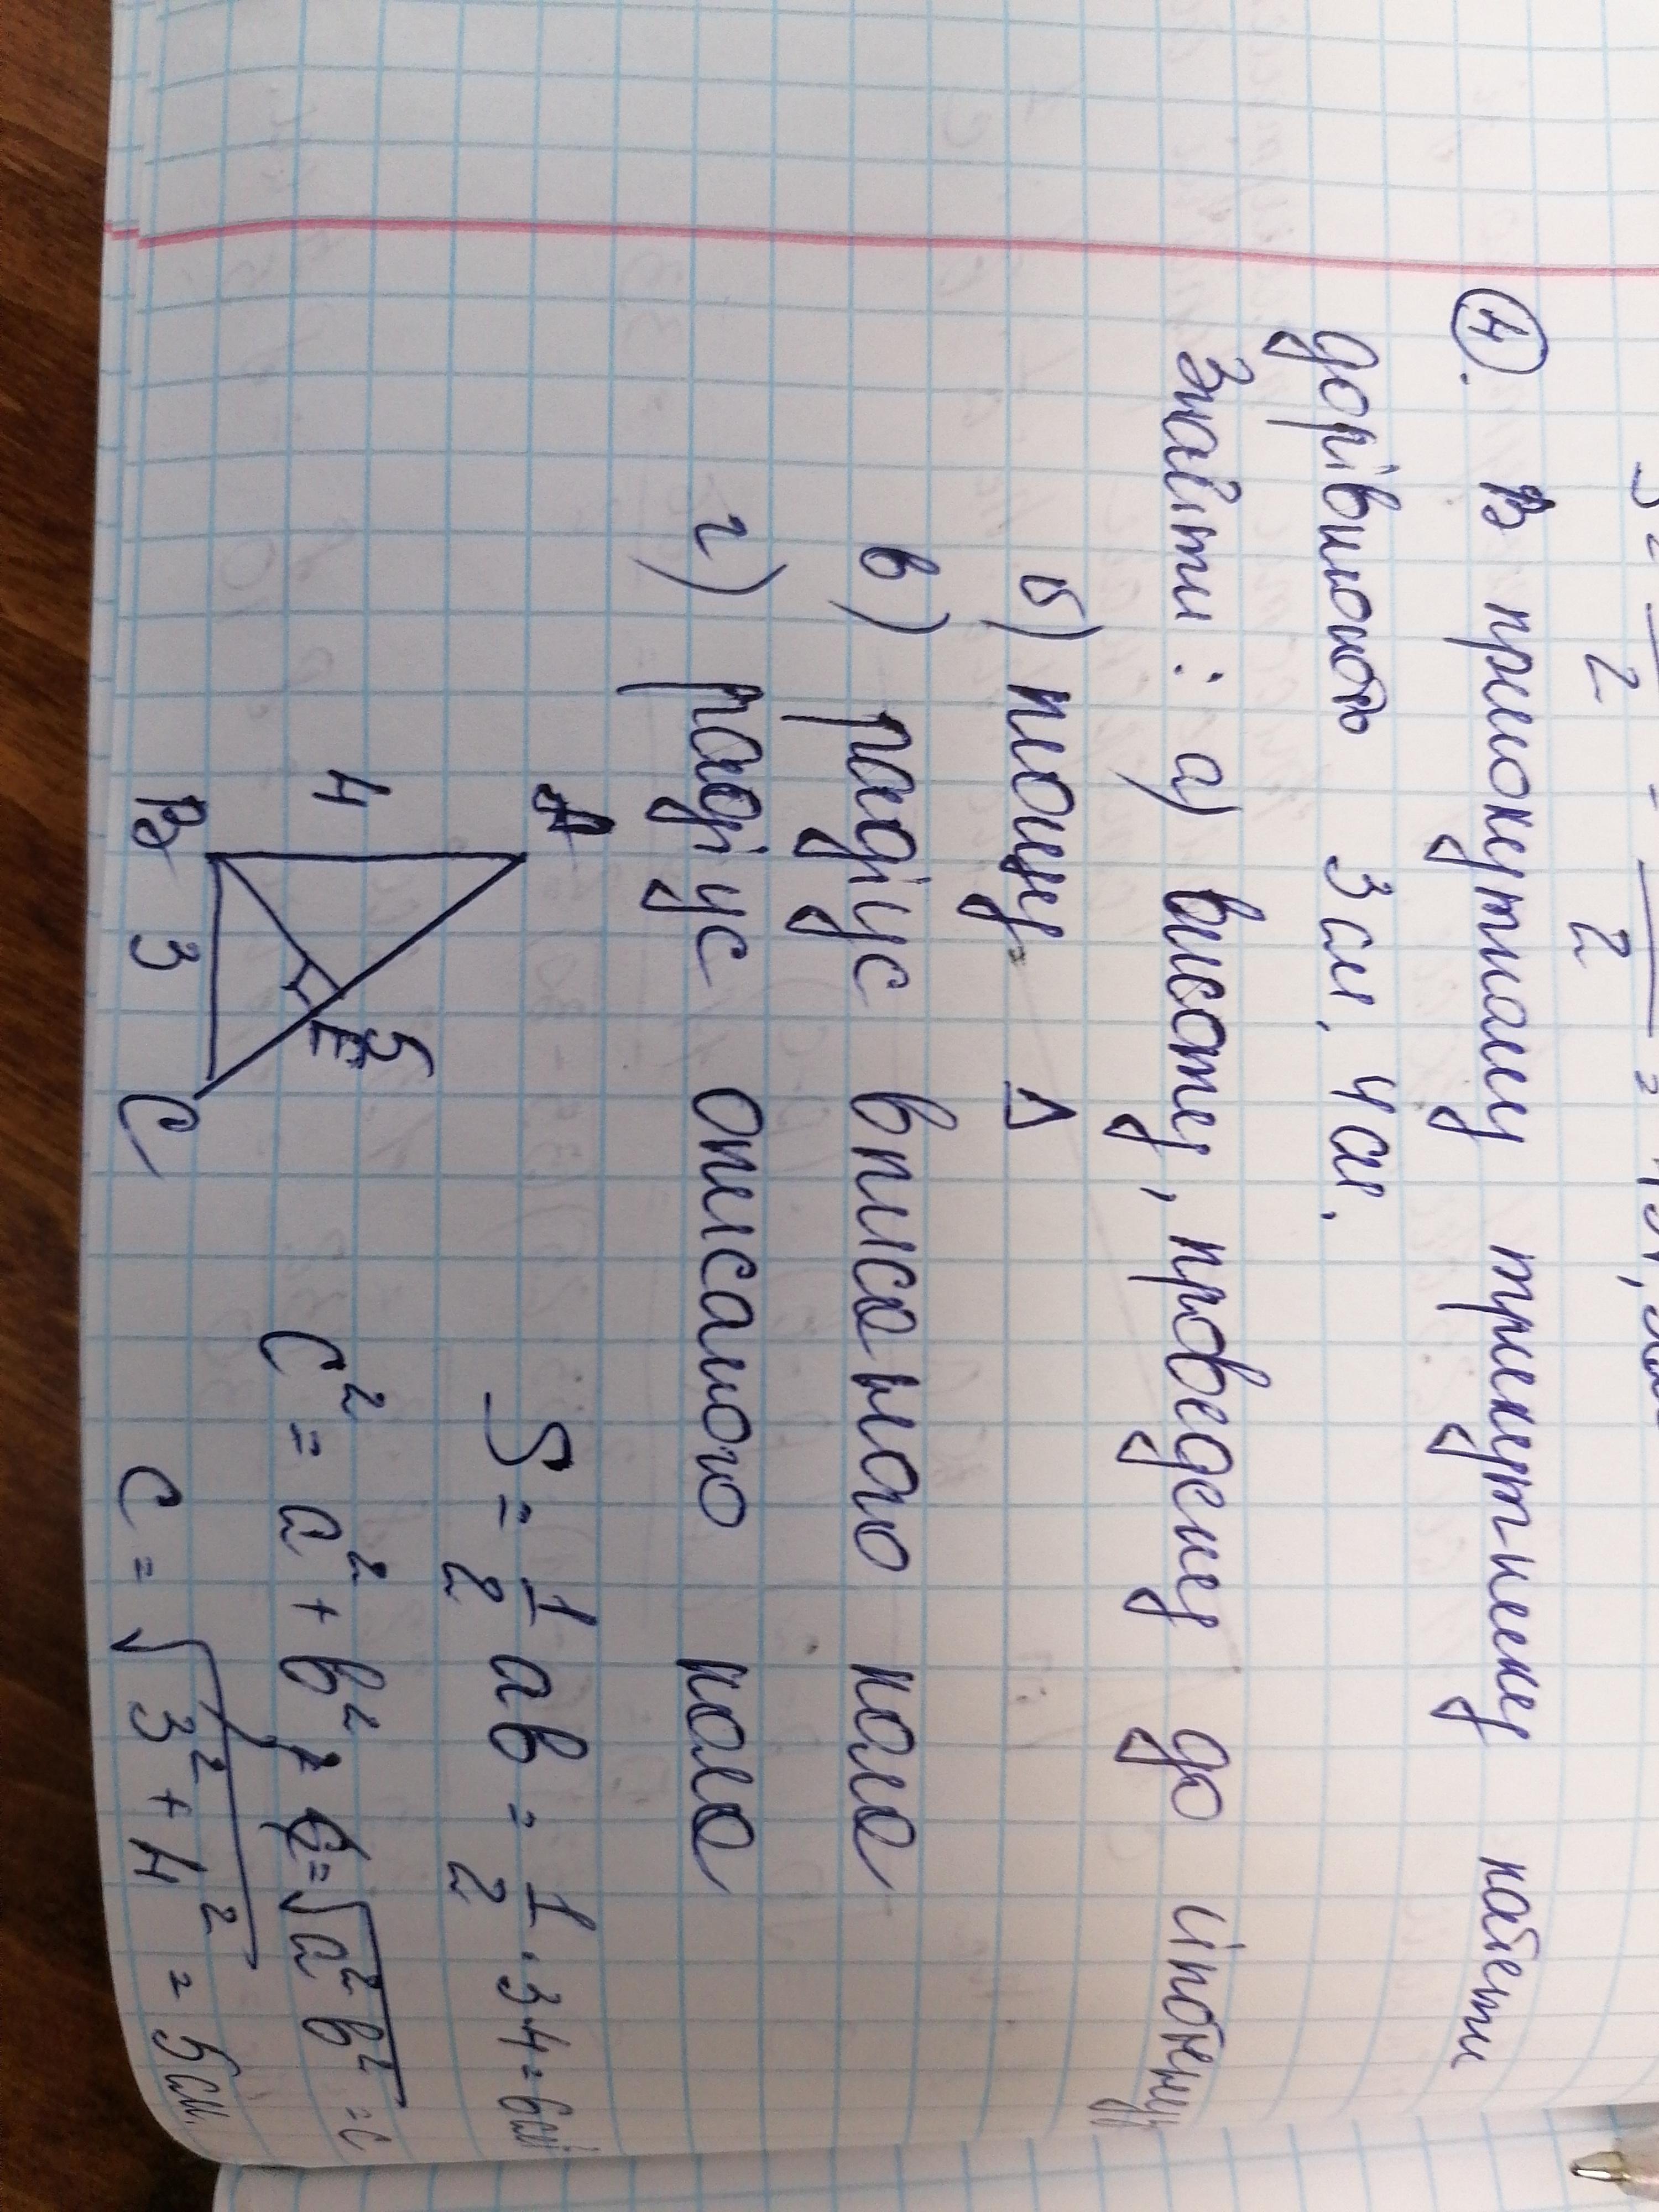 ④. В прямокутному трикутнику катети
дорівнюють 3 см. 4 см.
Знайти: а) висоту, проведену до гіпотенузи
б) площу Δ
в) радіус вписаного кола
г) радіус описаного кола
A
4
5
E
B 3 C
S = 1/2 ab = 1/2 · 3 4 = 6 см²
C² = a² + b²; c = √a² b² = c
C = √3² + 4² = 5 см.